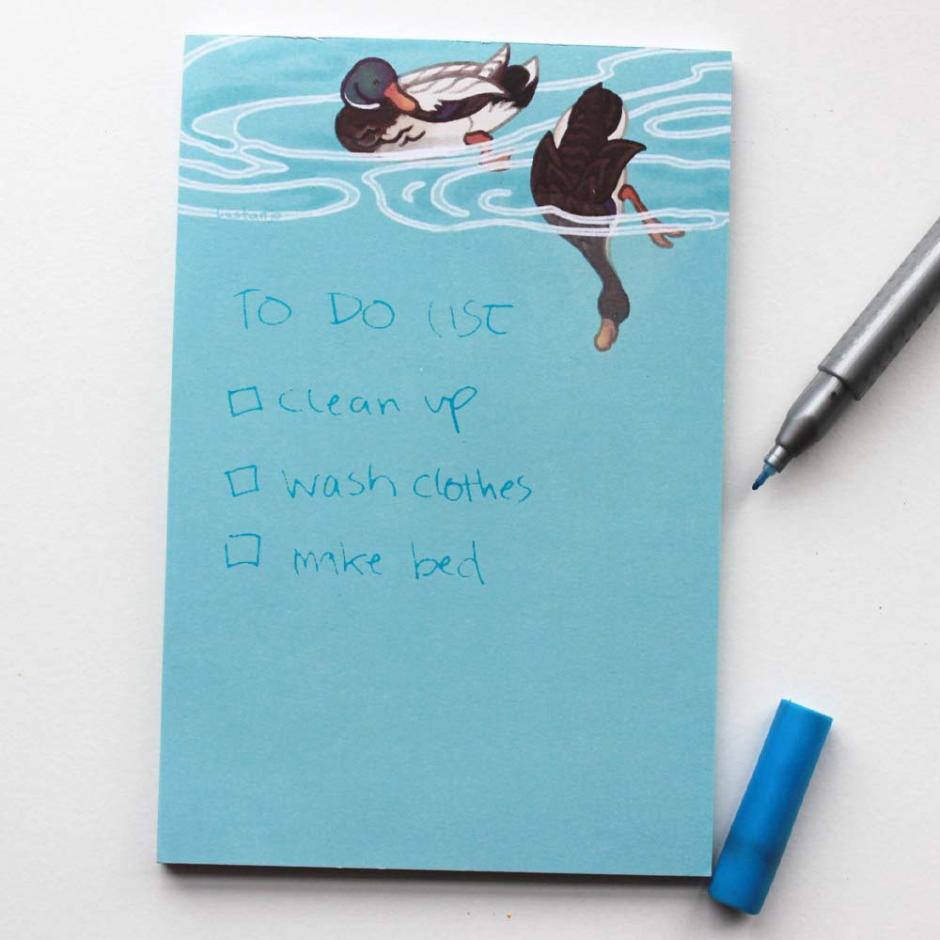 TO DO LIST
clean up
wash clothes
make bed